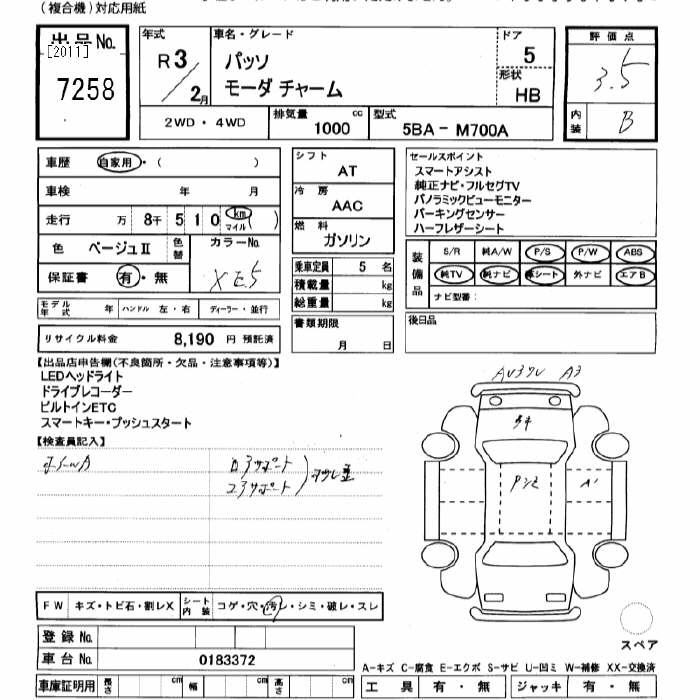 (複合機)対応用紙
出品No.
[2011]
7258
年式
R 3 / 2月
車名・グレード
パッソ
モーダ チャーム
ドア
5
形状
HB
評価点
3.5
内装
B
2WD・4WD
排気量
1000 cc
型式
5BA - M700A
車歴 自家用・( )
車検 年 月
走行 万 8千 5 1 0 km マイル )
色 ベージュⅡ 色替
カラーNo.
XE5
保証書 有・無
モデル年式 年 ハンドル 左・右 ディーラー・並行
リサイクル料金 8,190 円 預託済
シフト
AT
冷房
AAC
燃料
ガソリン
乗車定員 5 名
積載量 kg
総重量 kg
書類期限
月 日
セールスポイント
スマートアシスト
純正ナビ・フルセグTV
パノラミックビューモニター
パーキングセンサー
ハーフレザーシート
装備品
S/R 純A/W P/S P/W ABS
純TV 純ナビ 革シート 外ナビ エアB
ナビ型番:
後日品
【出品店申告欄(不良箇所・欠品・注意事項等)】
LEDヘッドライト
ドライブレコーダー
ビルトインETC
スマートキー・プッシュスタート
【検査員記入】
ロアサポート
コアサポート
A3
A1
FW キズ・トビ石・割レX シート内装 コゲ・穴・汚レ・シミ・破レ・スレ
登録No.
車台No. 0183372
車庫証明用 長さ cm 幅 cm 高さ cm
スペア
A-キズ C-腐食 E-エクボ S-サビ U-凹ミ W-補修 XX-交換済
工具 有・無 ジャッキ 有・無